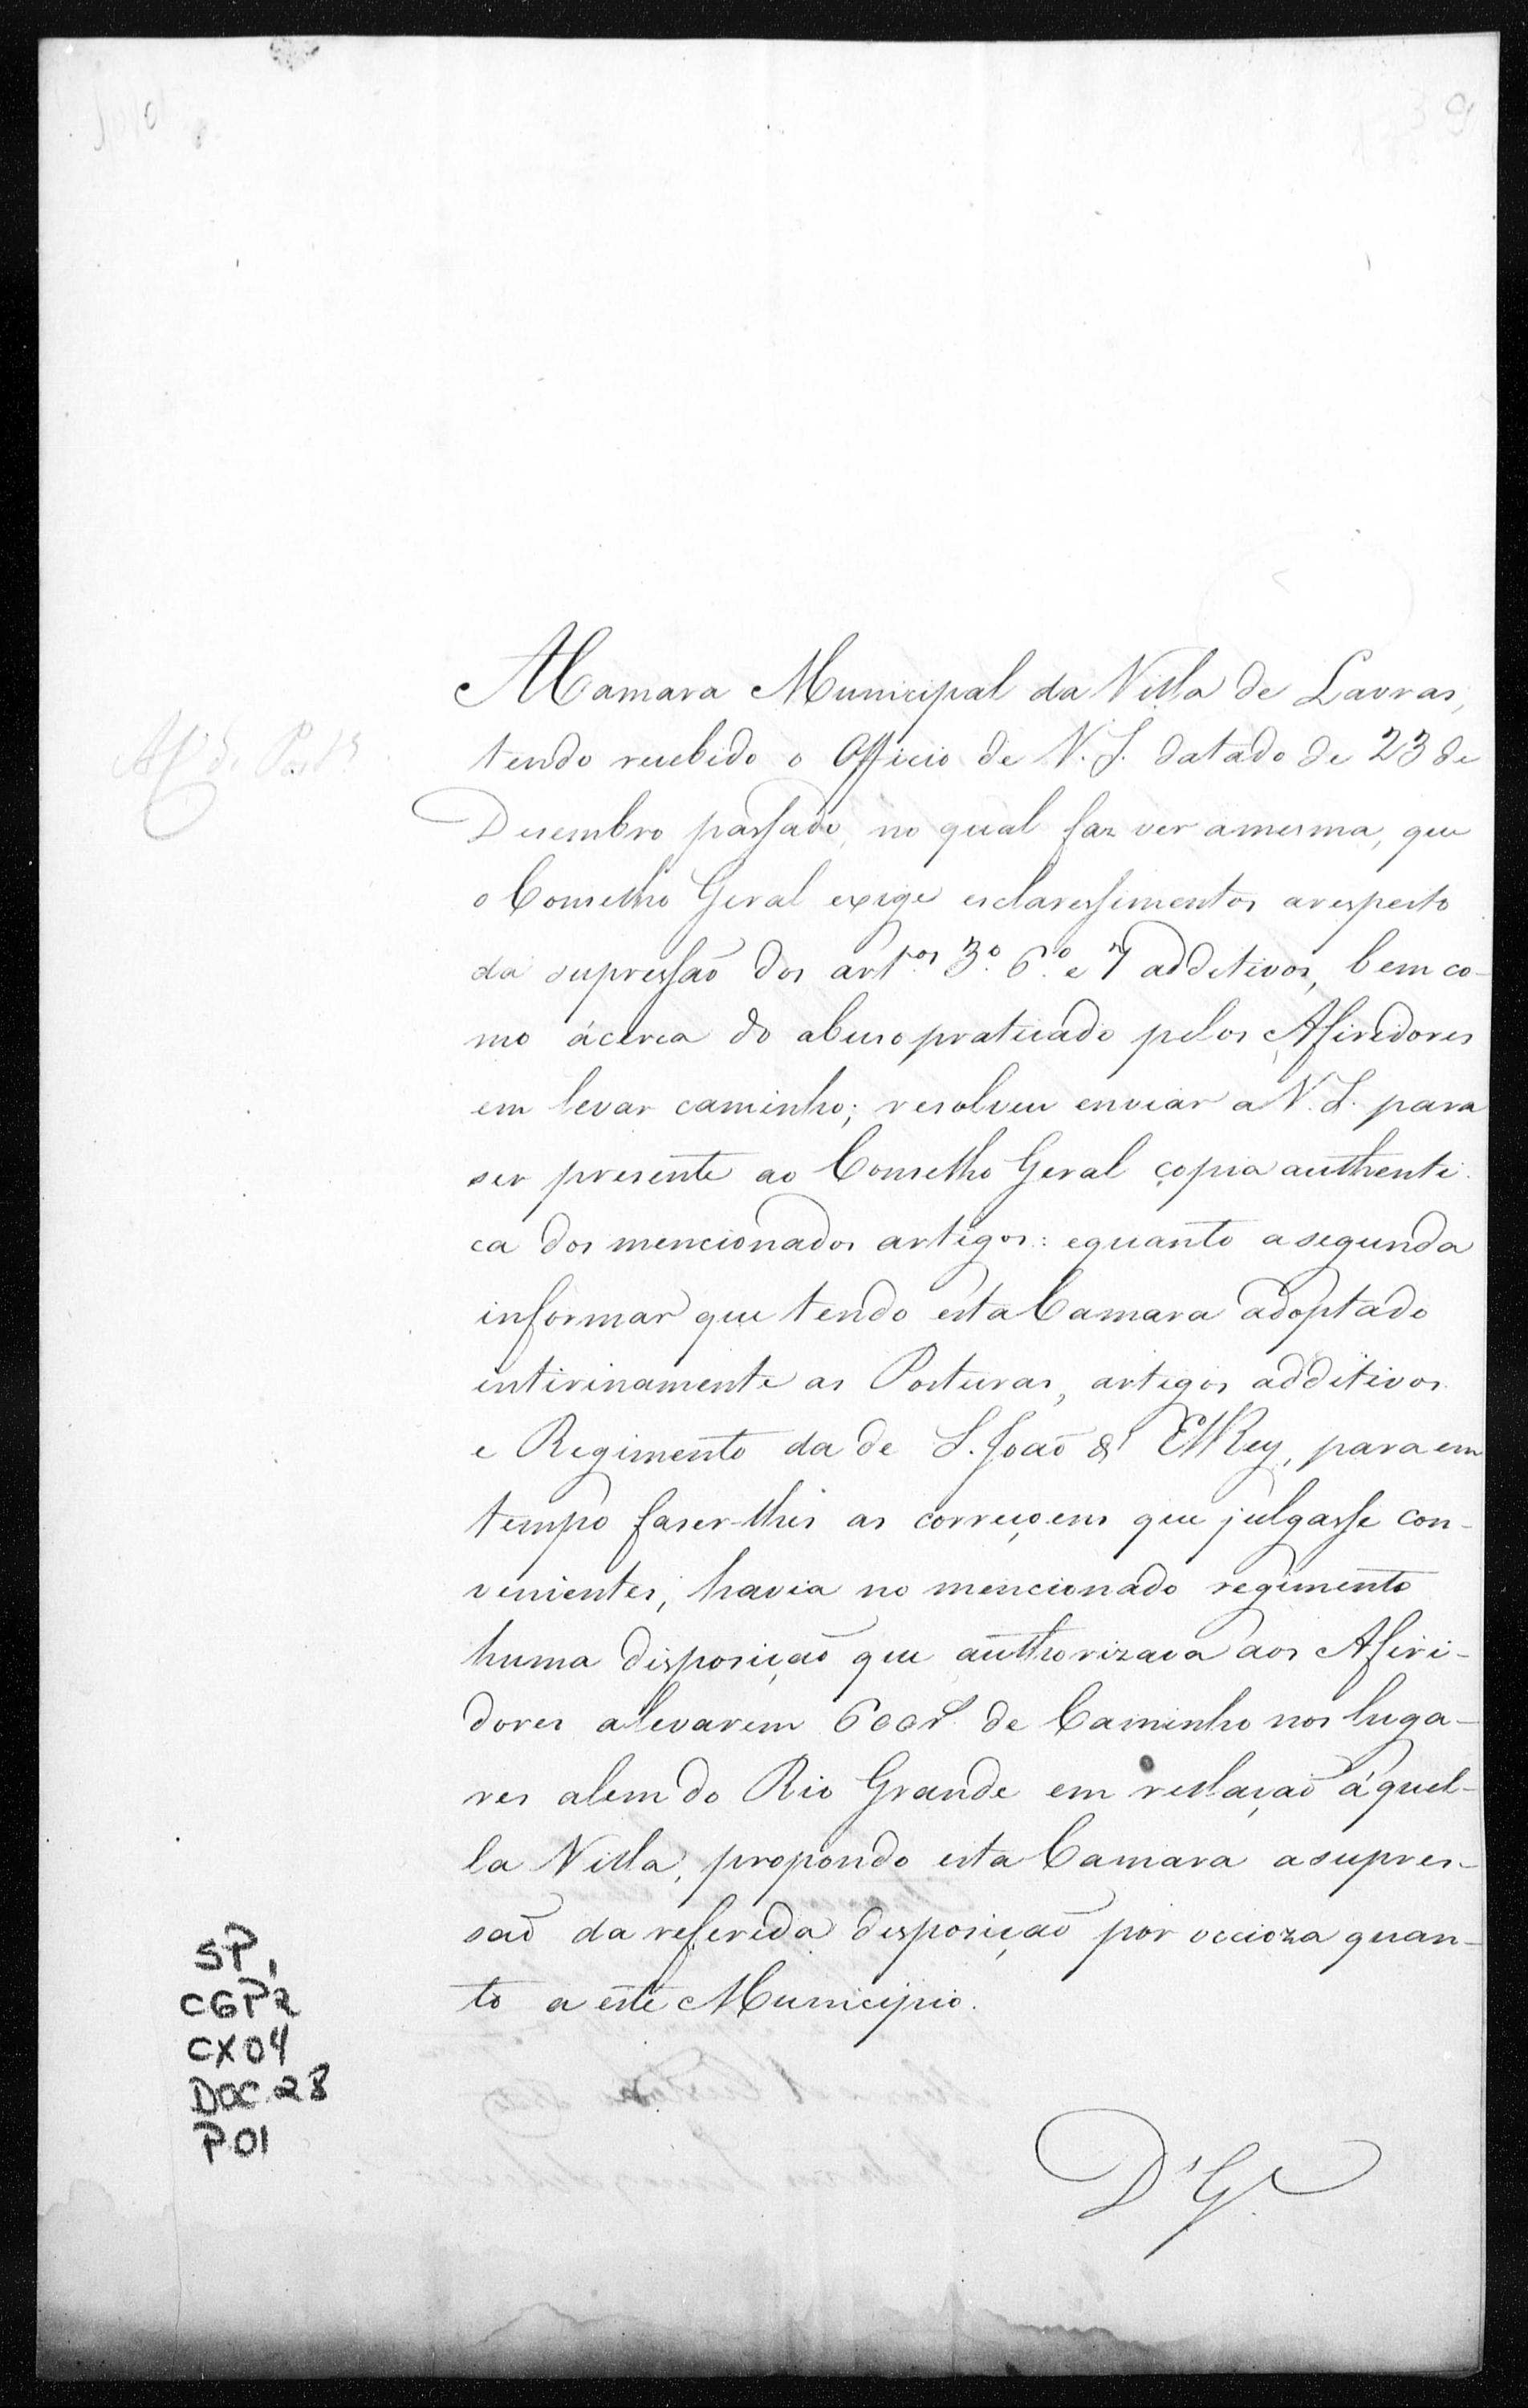 A Camara Municipal da Villa de Lavras,
tendo recebido o Officio de V. S. datado de 23 de
Desembro passado, no qual faz ver amesma, que
o Conselho Geral exige esclaressimentos arespeito
da supressaõ dos art.os 3.º 6.º e 7º additivos, bem co-
mo ácerca do abuso praticado pelos Afiridores
em levar caminho; resolveu enviar a V. S. para
ser presente ao Conselho Geral copia authenti-
ca dos mencionados artigos: equanto asegunda
informar que tendo esta Camara adoptado
intirinamente as Posturas, artigos additivos
e Regimento da de S. Joaõ d' ElRey, para em
tempo faser-lhes as correçoens que julgasse con-
venientes, havia no mencionado regimento
huma disposiçaõ que authorizava aos Afiri-
dores alevarem 600r.s de Caminho nos luga-
res alem do Rio Grande em rellaçaõ áquel-
la Villa, propondo esta Camara asupres-
saõ da referida desposiçaõ por occioza quan-
to a este Municipio.
D.' G.
SP,
CGP2
CX04
DOC 28
P01